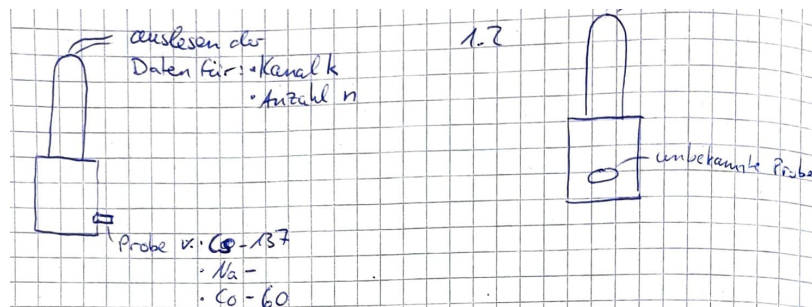 auslesen der
Daten für: • Kanal k
• Anzahl n
Probe v.: Cs-137
• Na-
• Co-60
1.2
unbekannte Probe